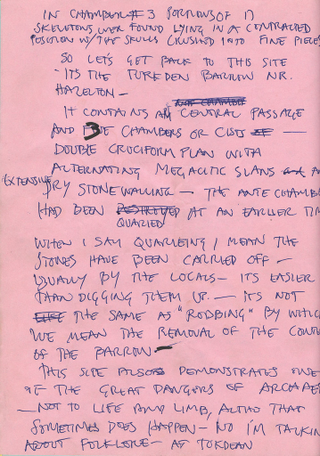 IN CHAMBER #3 PORTIONS OF 17
SKELETONS WERE FOUND LYING IN A CONTRACTED
POSITION W/ THE SKULLS CRUSHED INTO FINE PIECES
SO LET'S GET BACK TO THIS SITE
ITS THE TURKDEN BARROW NR.
HAZELTON —
IT CONTAINS A CENTRAL PASSAGE
AND CHAMBERS OR CISTS —
DOUBLE CRUCIFORM PLAN WITH
ALTERNATING MEGALITIC SLABS
EXTENSIVE DRY STONE WALLING — THE ANTE CHAMBER
HAD BEEN DESTROYED AT AN EARLIER TIM
QUARIED
WHEN I SAY QUARLEING I MEAN THE
STONES HAVE BEEN CARRIED OFF —
USUALLY BY THE LOCALS — ITS EASIER
THAN DIGGING THEM UP — IT'S NOT
THE SAME AS "ROBBING" BY WHICH
WE MEAN THE REMOVAL OF THE CONT
OF THE BARROW —
THIS SITE ALSO DEMONSTRATES ONE
OF THE GREAT DANGERS OF ARCHAE
— NOT TO LIFE AND LIMB, ALTHO THAT
SOMETIMES DOES HAPPEN — NO I'M TALKIN
ABOUT FOLKLORE — AT TOKDEAN